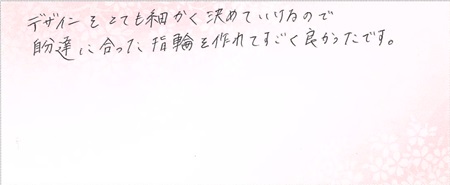 デザインをとても細かく決めていけるので
自分達に合った指輪を作れてすごく良かったです。